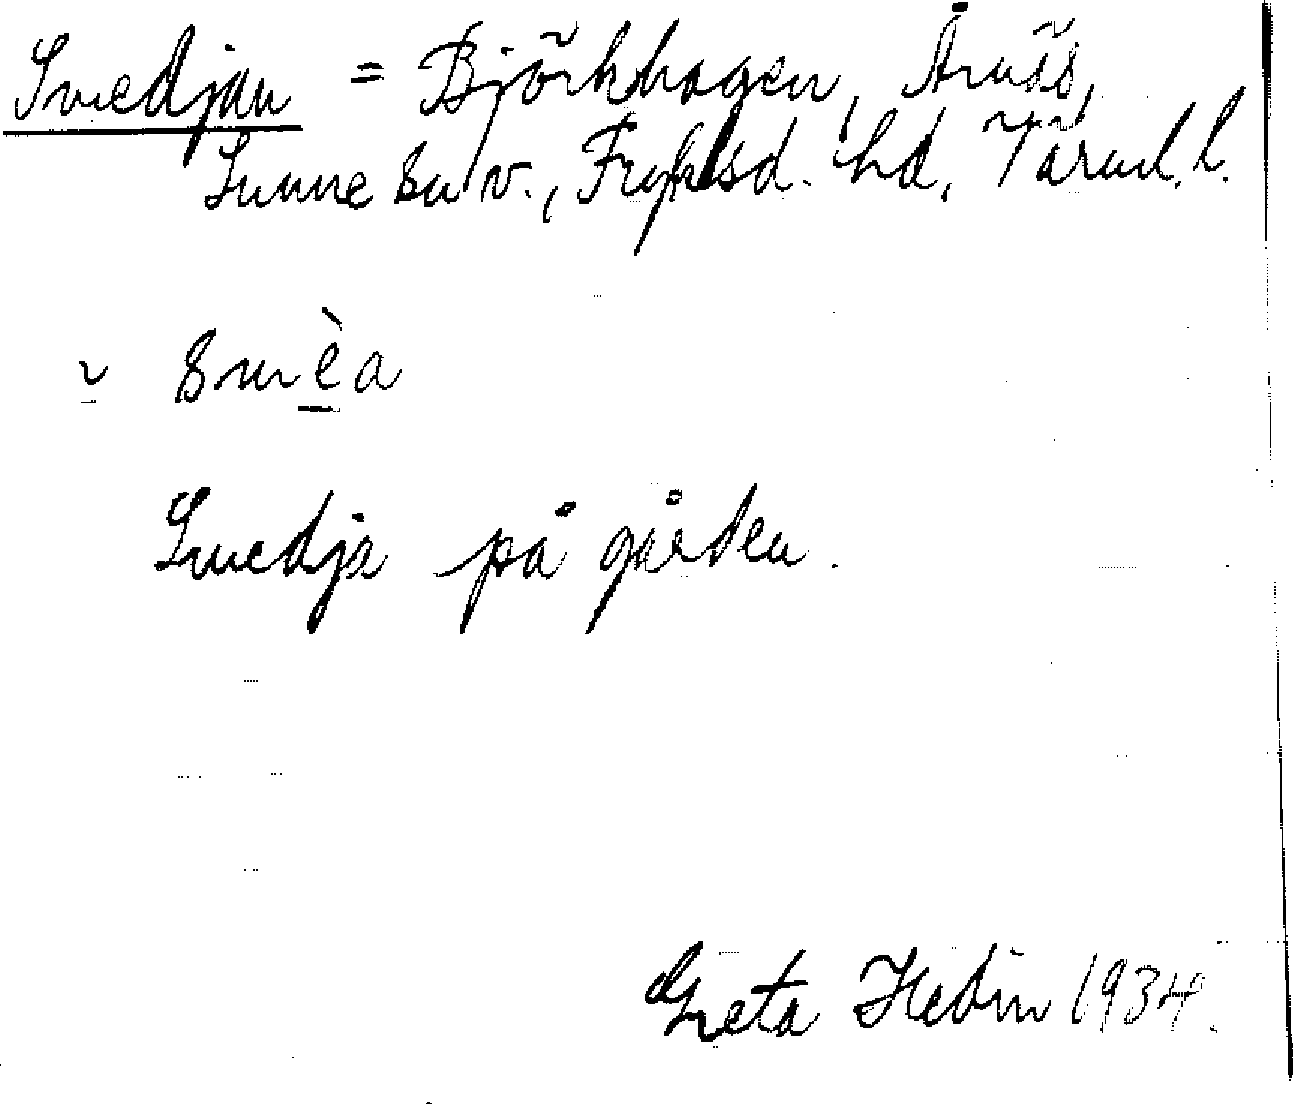 Smedjan = Björkhagen, Årnäs,
Sunne sn v., Fryksd. hd, Värml. l.
v smèa
Smedja på gården.
Greta Hedin 1934.